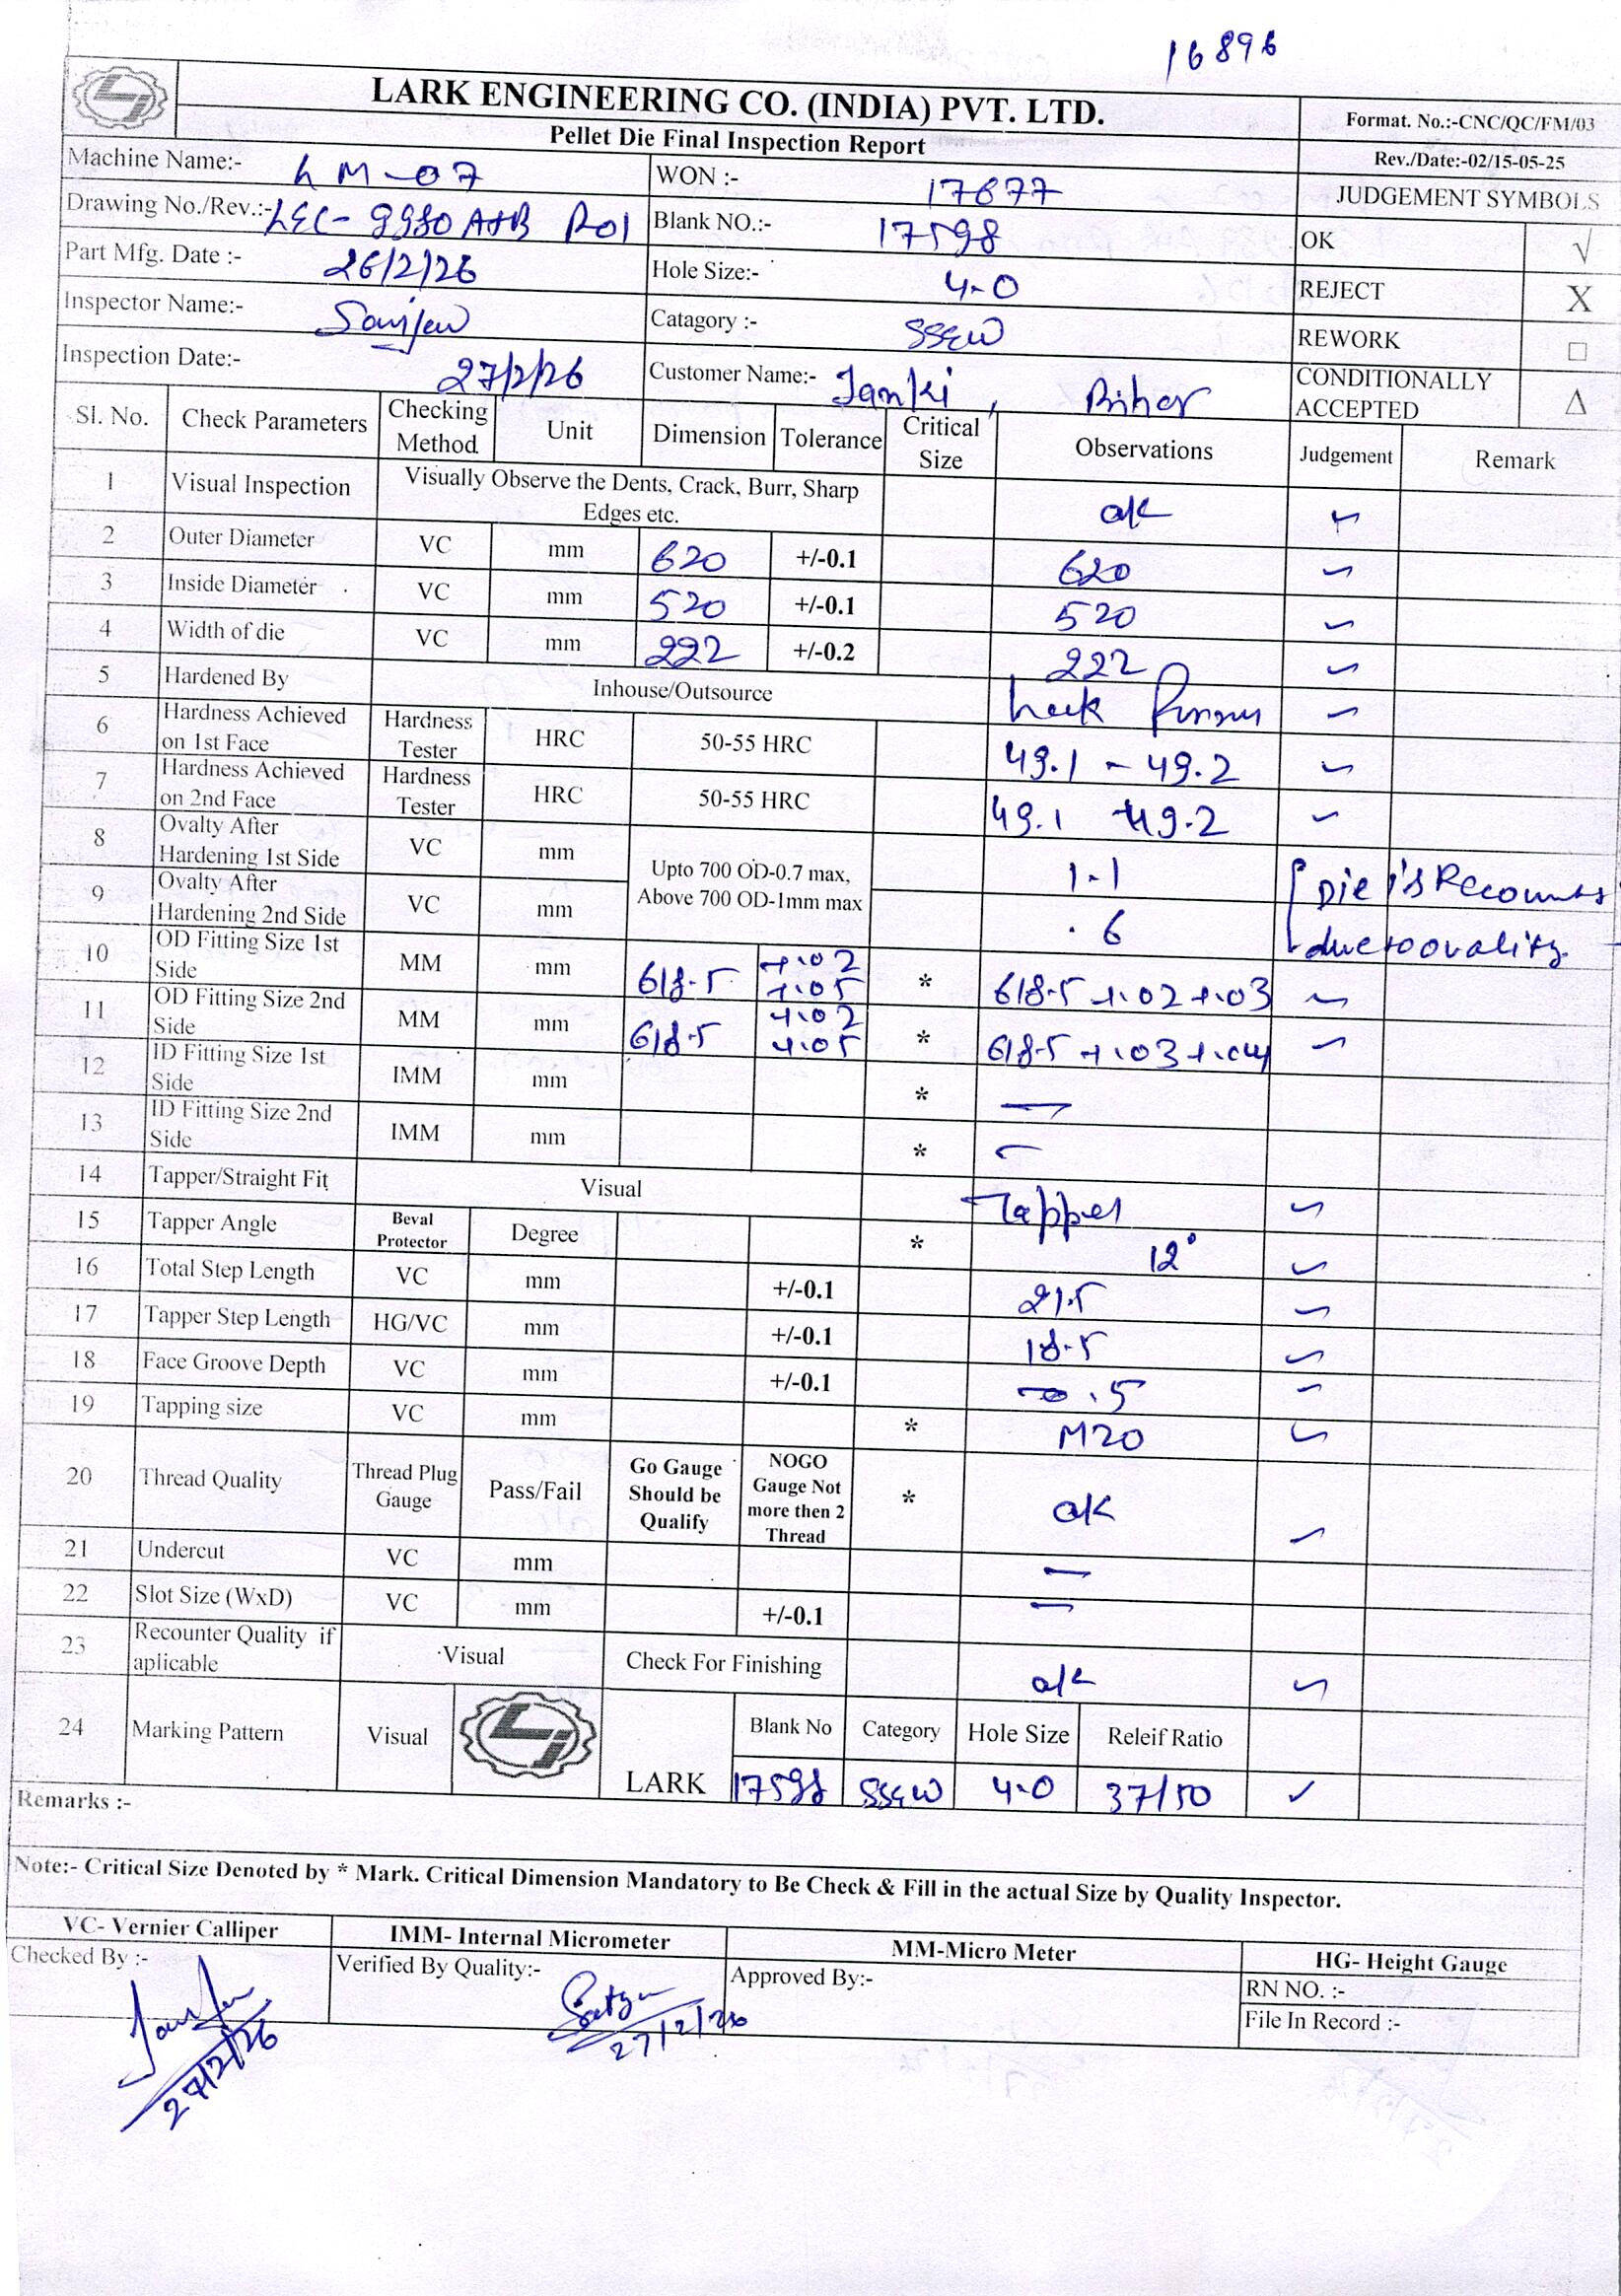 16896
LARK ENGINEERING CO. (INDIA) PVT. LTD.
Pellet Die Final Inspection Report
Format. No.:-CNC/QC/FM/03
Rev./Date:-02/15-05-25
Machine Name:- LM-07
WON :- 17677
JUDGEMENT SYMBOLS
Drawing No./Rev.:- LEC-9980 A+B R01
Blank NO.:- 17598
OK √
Part Mfg. Date :- 26/2/26
Hole Size:- 4.0
REJECT X
Inspector Name:- Sanjeev
Catagory :- SSEW
REWORK □
Inspection Date:- 27/2/26
Customer Name:- Janki, Bihar
CONDITIONALLY ACCEPTED Δ
Sl. No. Check Parameters Checking Method Unit Dimension Tolerance Critical Size Observations Judgement Remark
1 Visual Inspection Visually Observe the Dents, Crack, Burr, Sharp Edges etc. ok ✓
2 Outer Diameter VC mm 620 +/-0.1 620 ✓
3 Inside Diameter VC mm 520 +/-0.1 520 ✓
4 Width of die VC mm 222 +/-0.2 222 ✓
5 Hardened By Inhouse/Outsource ✓
6 Hardness Achieved on 1st Face Hardness Tester HRC 50-55 HRC 49.1 - 49.2 ✓
7 Hardness Achieved on 2nd Face Hardness Tester HRC 50-55 HRC 49.1 - 49.2 ✓
8 Ovalty After Hardening 1st Side VC mm Upto 700 OD-0.7 max, Above 700 OD-1mm max 1.1 Die is
9 Ovalty After Hardening 2nd Side VC mm .6 due to ovality.
10 OD Fitting Size 1st Side MM mm 618.5 +.02 +.05 * 618.5 +.02 +.03 ✓
11 OD Fitting Size 2nd Side MM mm 618.5 +.02 +.05 * 618.5 +.03 +.04 ✓
12 ID Fitting Size 1st Side IMM mm * —
13 ID Fitting Size 2nd Side IMM mm * —
14 Tapper/Straight Fit Visual Tapper ✓
15 Tapper Angle Beval Protector Degree * 12° ✓
16 Total Step Length VC mm +/-0.1 21.5 ✓
17 Tapper Step Length HG/VC mm +/-0.1 18.5 ✓
18 Face Groove Depth VC mm +/-0.1 0.5 ✓
19 Tapping size VC mm * M20 ✓
20 Thread Quality Thread Plug Gauge Pass/Fail Go Gauge Should be Qualify NOGO Gauge Not more then 2 Thread * ok ✓
21 Undercut VC mm —
22 Slot Size (WxD) VC mm +/-0.1 —
23 Recounter Quality if aplicable Visual Check For Finishing ok ✓
24 Marking Pattern Visual LARK Blank No Category Hole Size Releif Ratio
17598 SSEW 4.0 37/50 ✓
Remarks :-
Note:- Critical Size Denoted by * Mark. Critical Dimension Mandatory to Be Check & Fill in the actual Size by Quality Inspector.
VC- Vernier Calliper IMM- Internal Micrometer MM-Micro Meter HG- Height Gauge
Checked By :- Verified By Quality:- Approved By:- RN NO. :-
File In Record :-
27/2/26 27/2/26